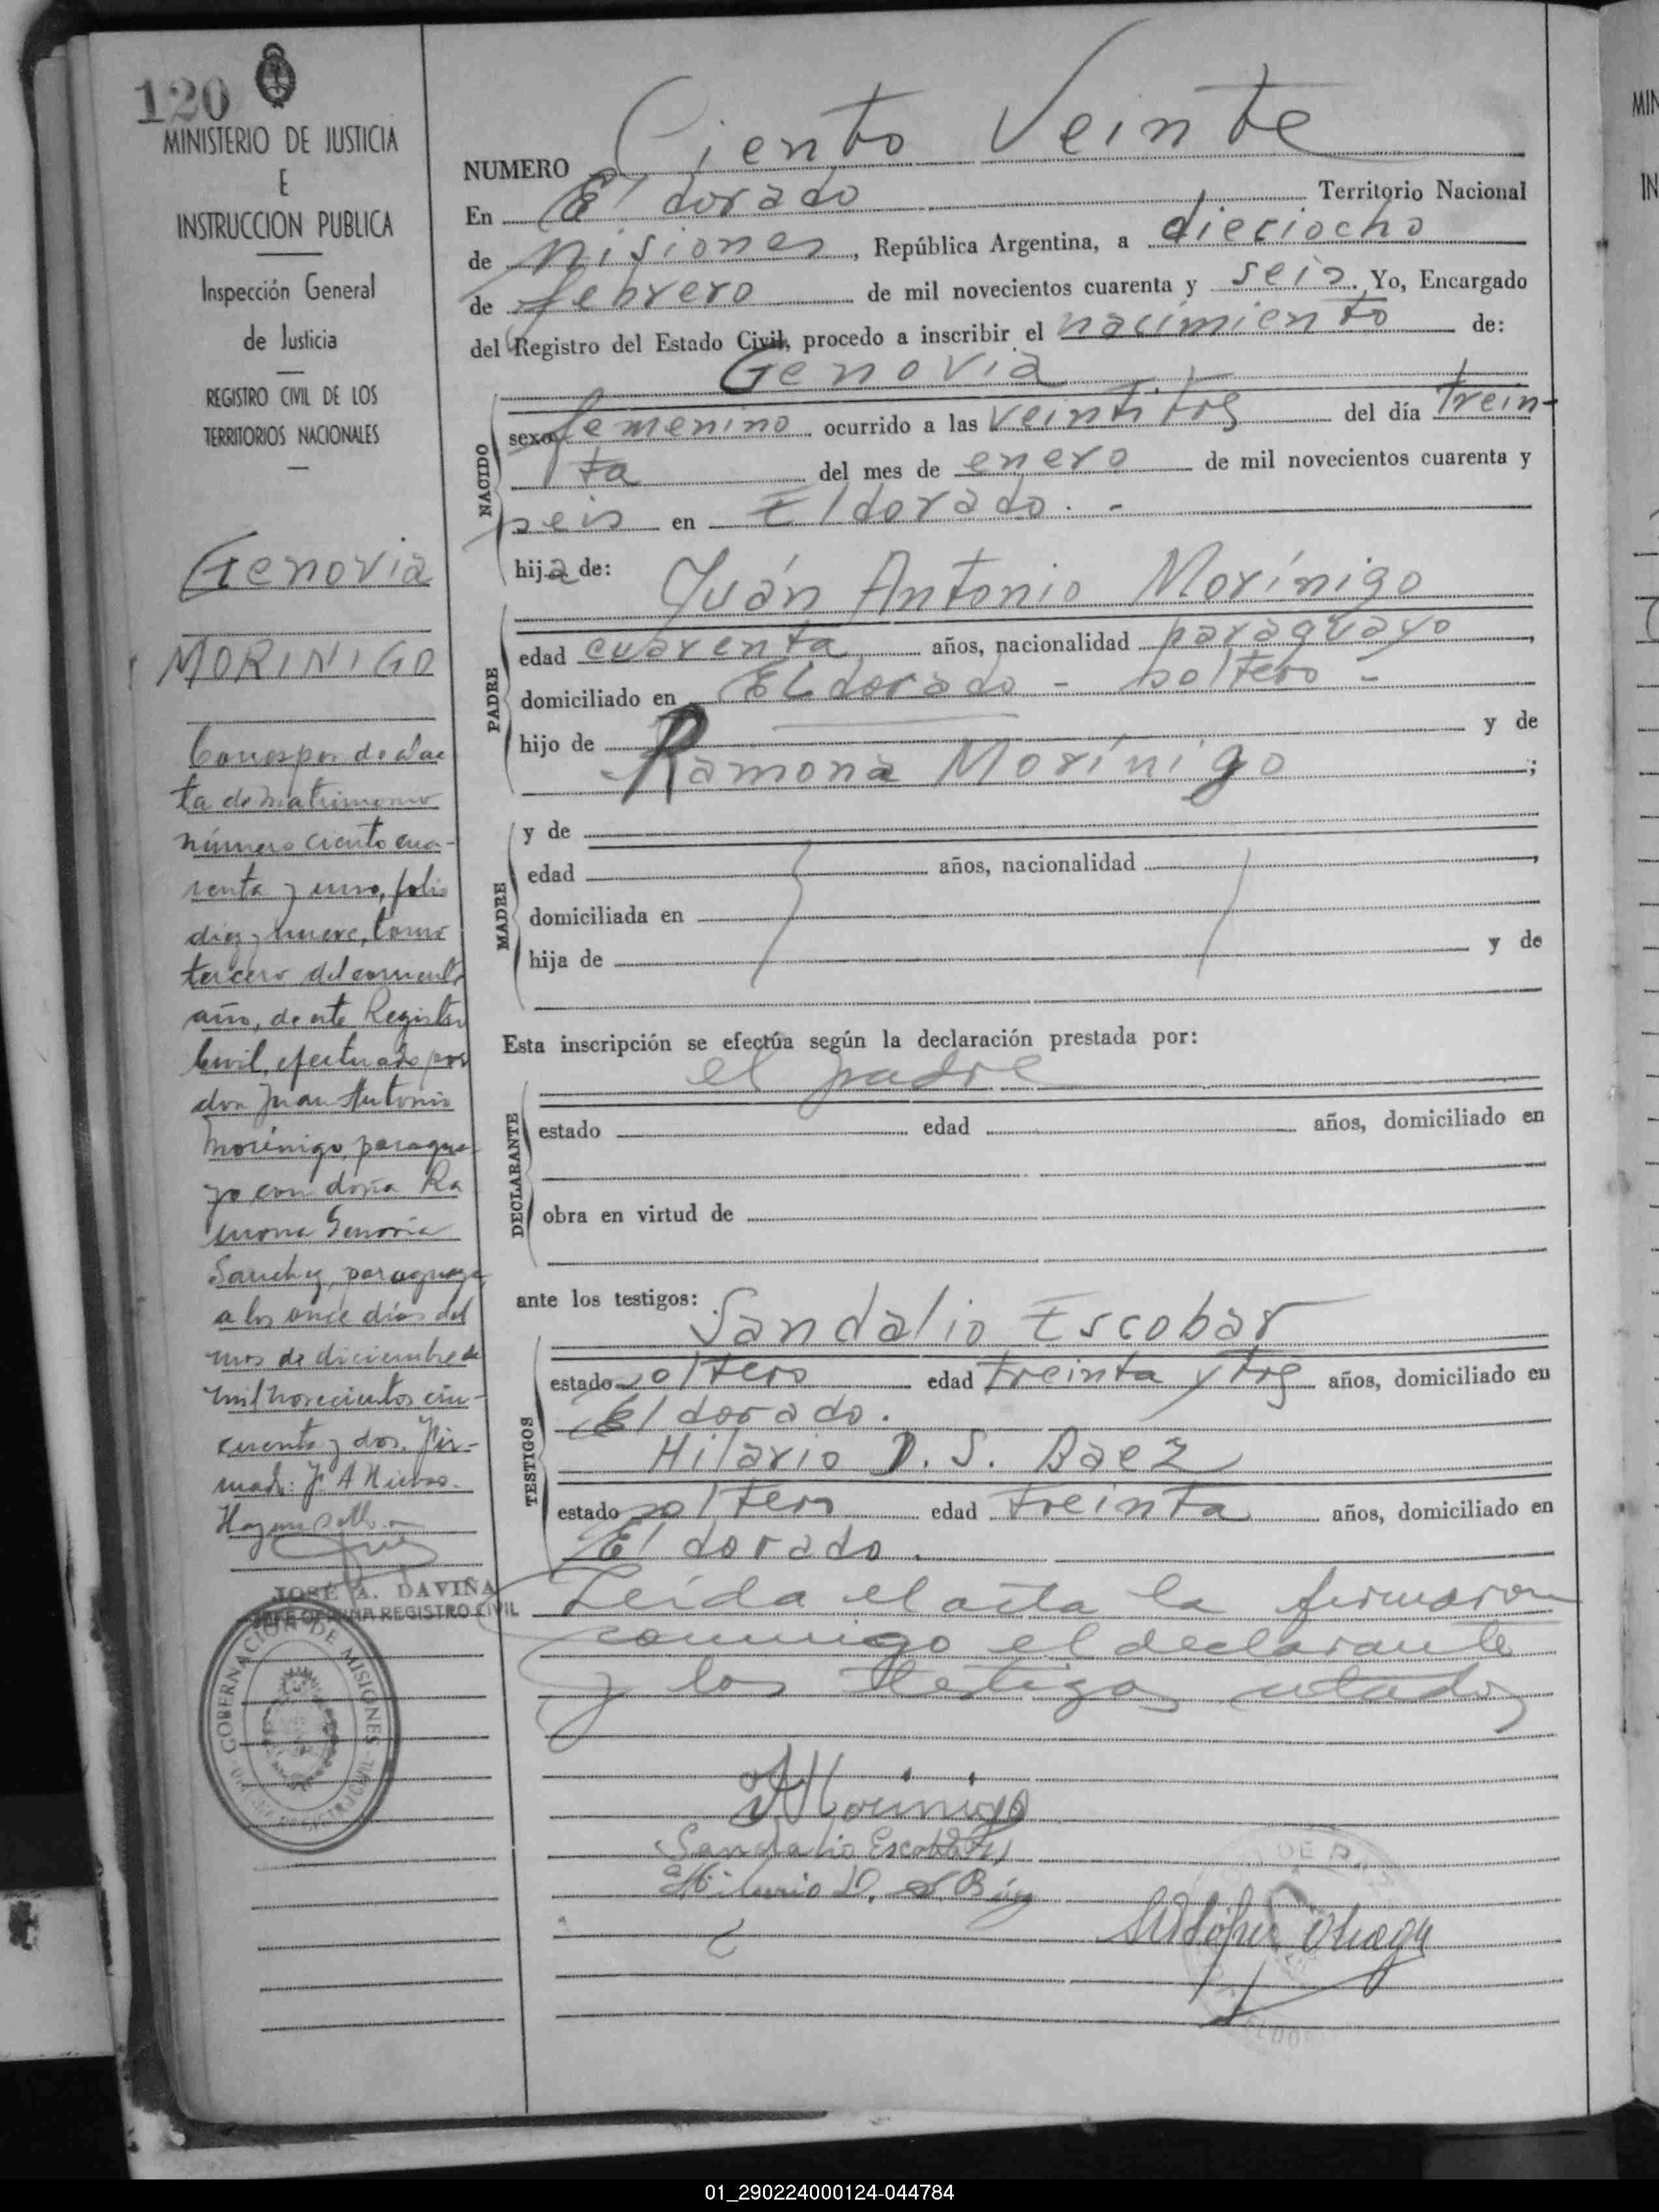 120
MINISTERIO DE JUSTICIA
E
INSTRUCCION PUBLICA
Inspección General
de Justicia
REGISTRO CIVIL DE LOS
TERRITORIOS NACIONALES
Genovia
MORINIGO
Corresponde al ac
ta de matrimonio
número ciento cua-
renta y uno, folio
diez y nueve, tomo
tercero del corriente
año, de este Registro
Civil, efectuado por
don Juan Antonio
Morínigo, paragua-
yo con doña Ra
mona
Sanchez, paraguaya,
a los once días del
mes de diciembre de
mil novecientos cin-
cuenta y dos. Fir-
mado: J. A.
JOSÉ A. DAVIÑA
JEFE OFICINA REGISTRO CIVIL
GOBERNACIÓN DE MISIONES
NUMERO Ciento Veinte
En El dorado Territorio Nacional
de Misiones, República Argentina, a dieciocho
de febrero de mil novecientos cuarenta y seis. Yo, Encargado
del Registro del Estado Civil, procedo a inscribir el nacimiento de:
Genovia
NACIDO
sexo femenino ocurrido a las veintitrés del día trein-
ta del mes de enero de mil novecientos cuarenta y
seis en Eldorado. -
hija de:
Juán Antonio Morínigo
PADRE
edad cuarenta años, nacionalidad paraguayo,
domiciliado en Eldorado - soltero -
hijo de y de
Ramona Morínigo;
MADRE
y de
edad años, nacionalidad ,
domiciliada en
hija de y de
Esta inscripción se efectúa según la declaración prestada por:
el padre
DECLARANTE
estado edad años, domiciliado en
obra en virtud de
ante los testigos:
Sandalio Escobar
TESTIGOS
estado soltero edad treinta y tres años, domiciliado en
Eldorado.
Hilario D. S. Baez
estado soltero edad treinta años, domiciliado en
El dorado.
Leída el acta la firmaron
conmigo el declarante
y los testigos citados
Morinigo
Sandalio Escobar
Hilario D. S. Báez